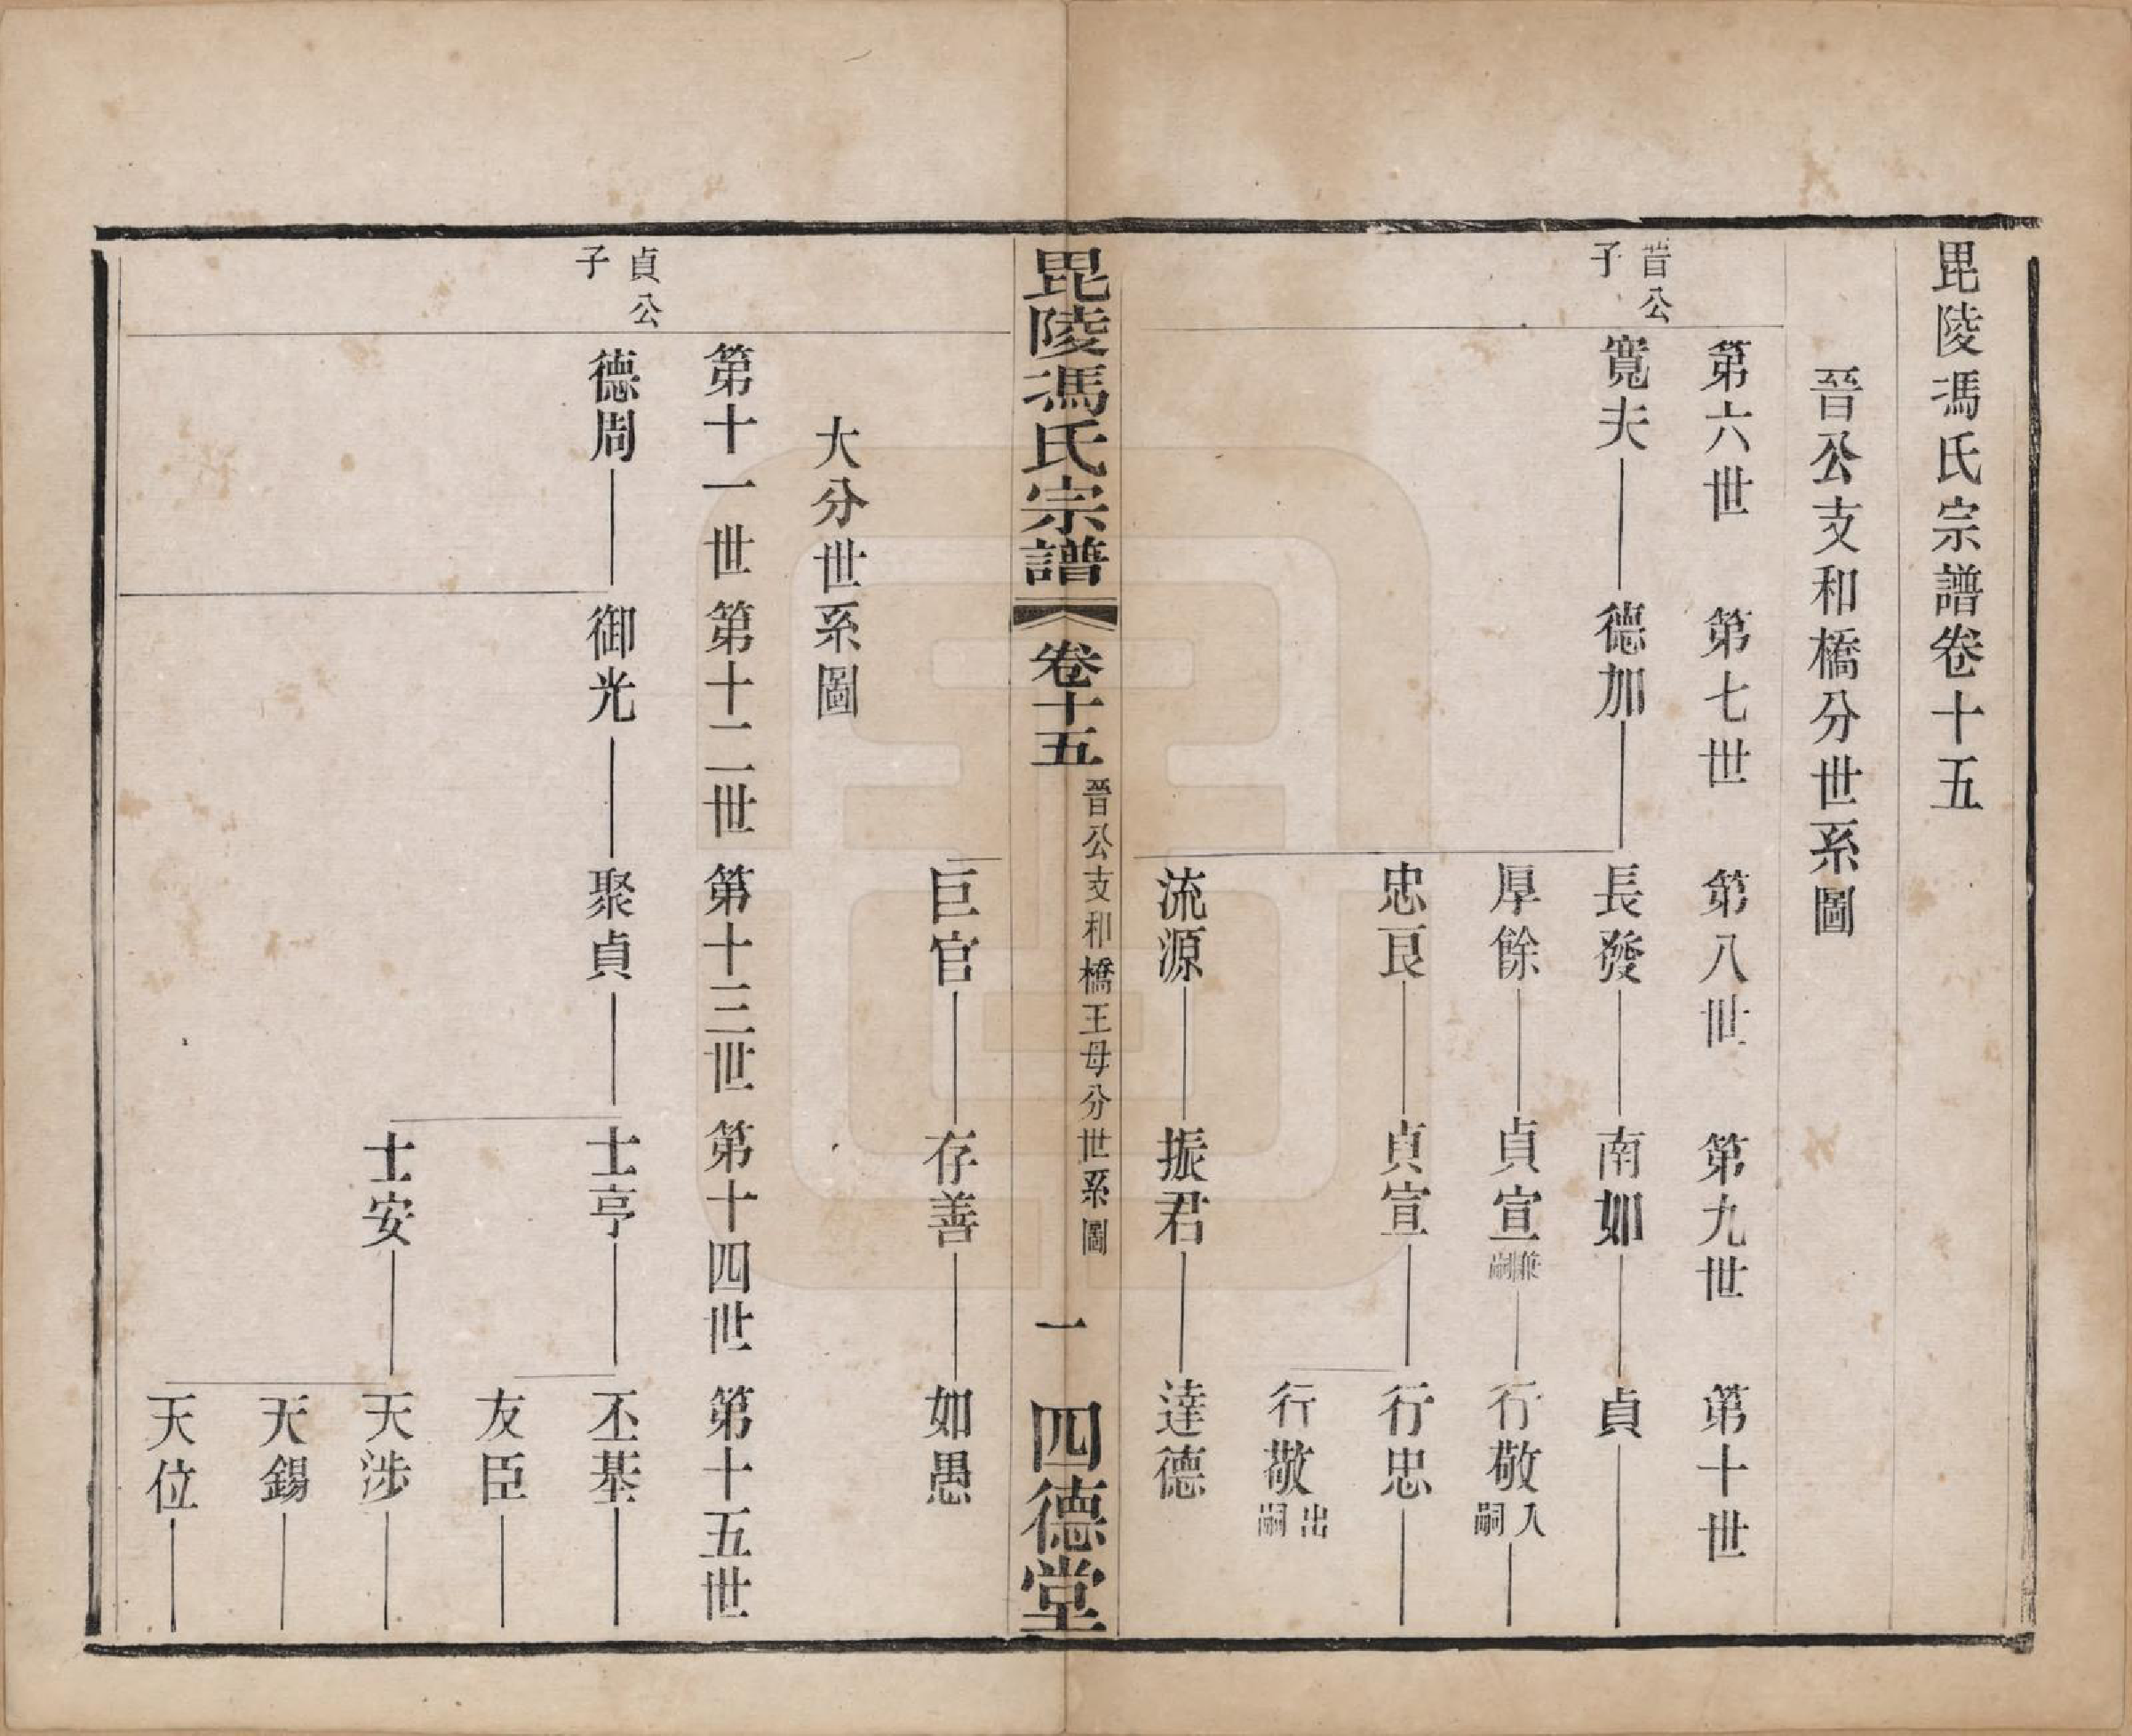 毘陵馮氏宗譜卷十五
晉公支和橋分世系圖
第六世 第七世 第八世 第九世 第十世
晉公
子
寬夫 德加 長發 南如 貞
厚餘 貞宣 兼嗣 行敬 入嗣
忠良 貞宣 行忠
行敬 出嗣
流源 振君 達德
毘陵馮氏宗譜 卷十五 晉公支和橋王母分世系圖 一 四德堂
巨官 存善 如愚
大分世系圖
第十一世 第十二世 第十三世 第十四世 第十五世
貞公
子
德周 御光 聚貞 士亨 丕基
友臣
士安 天涉
天錫
天位